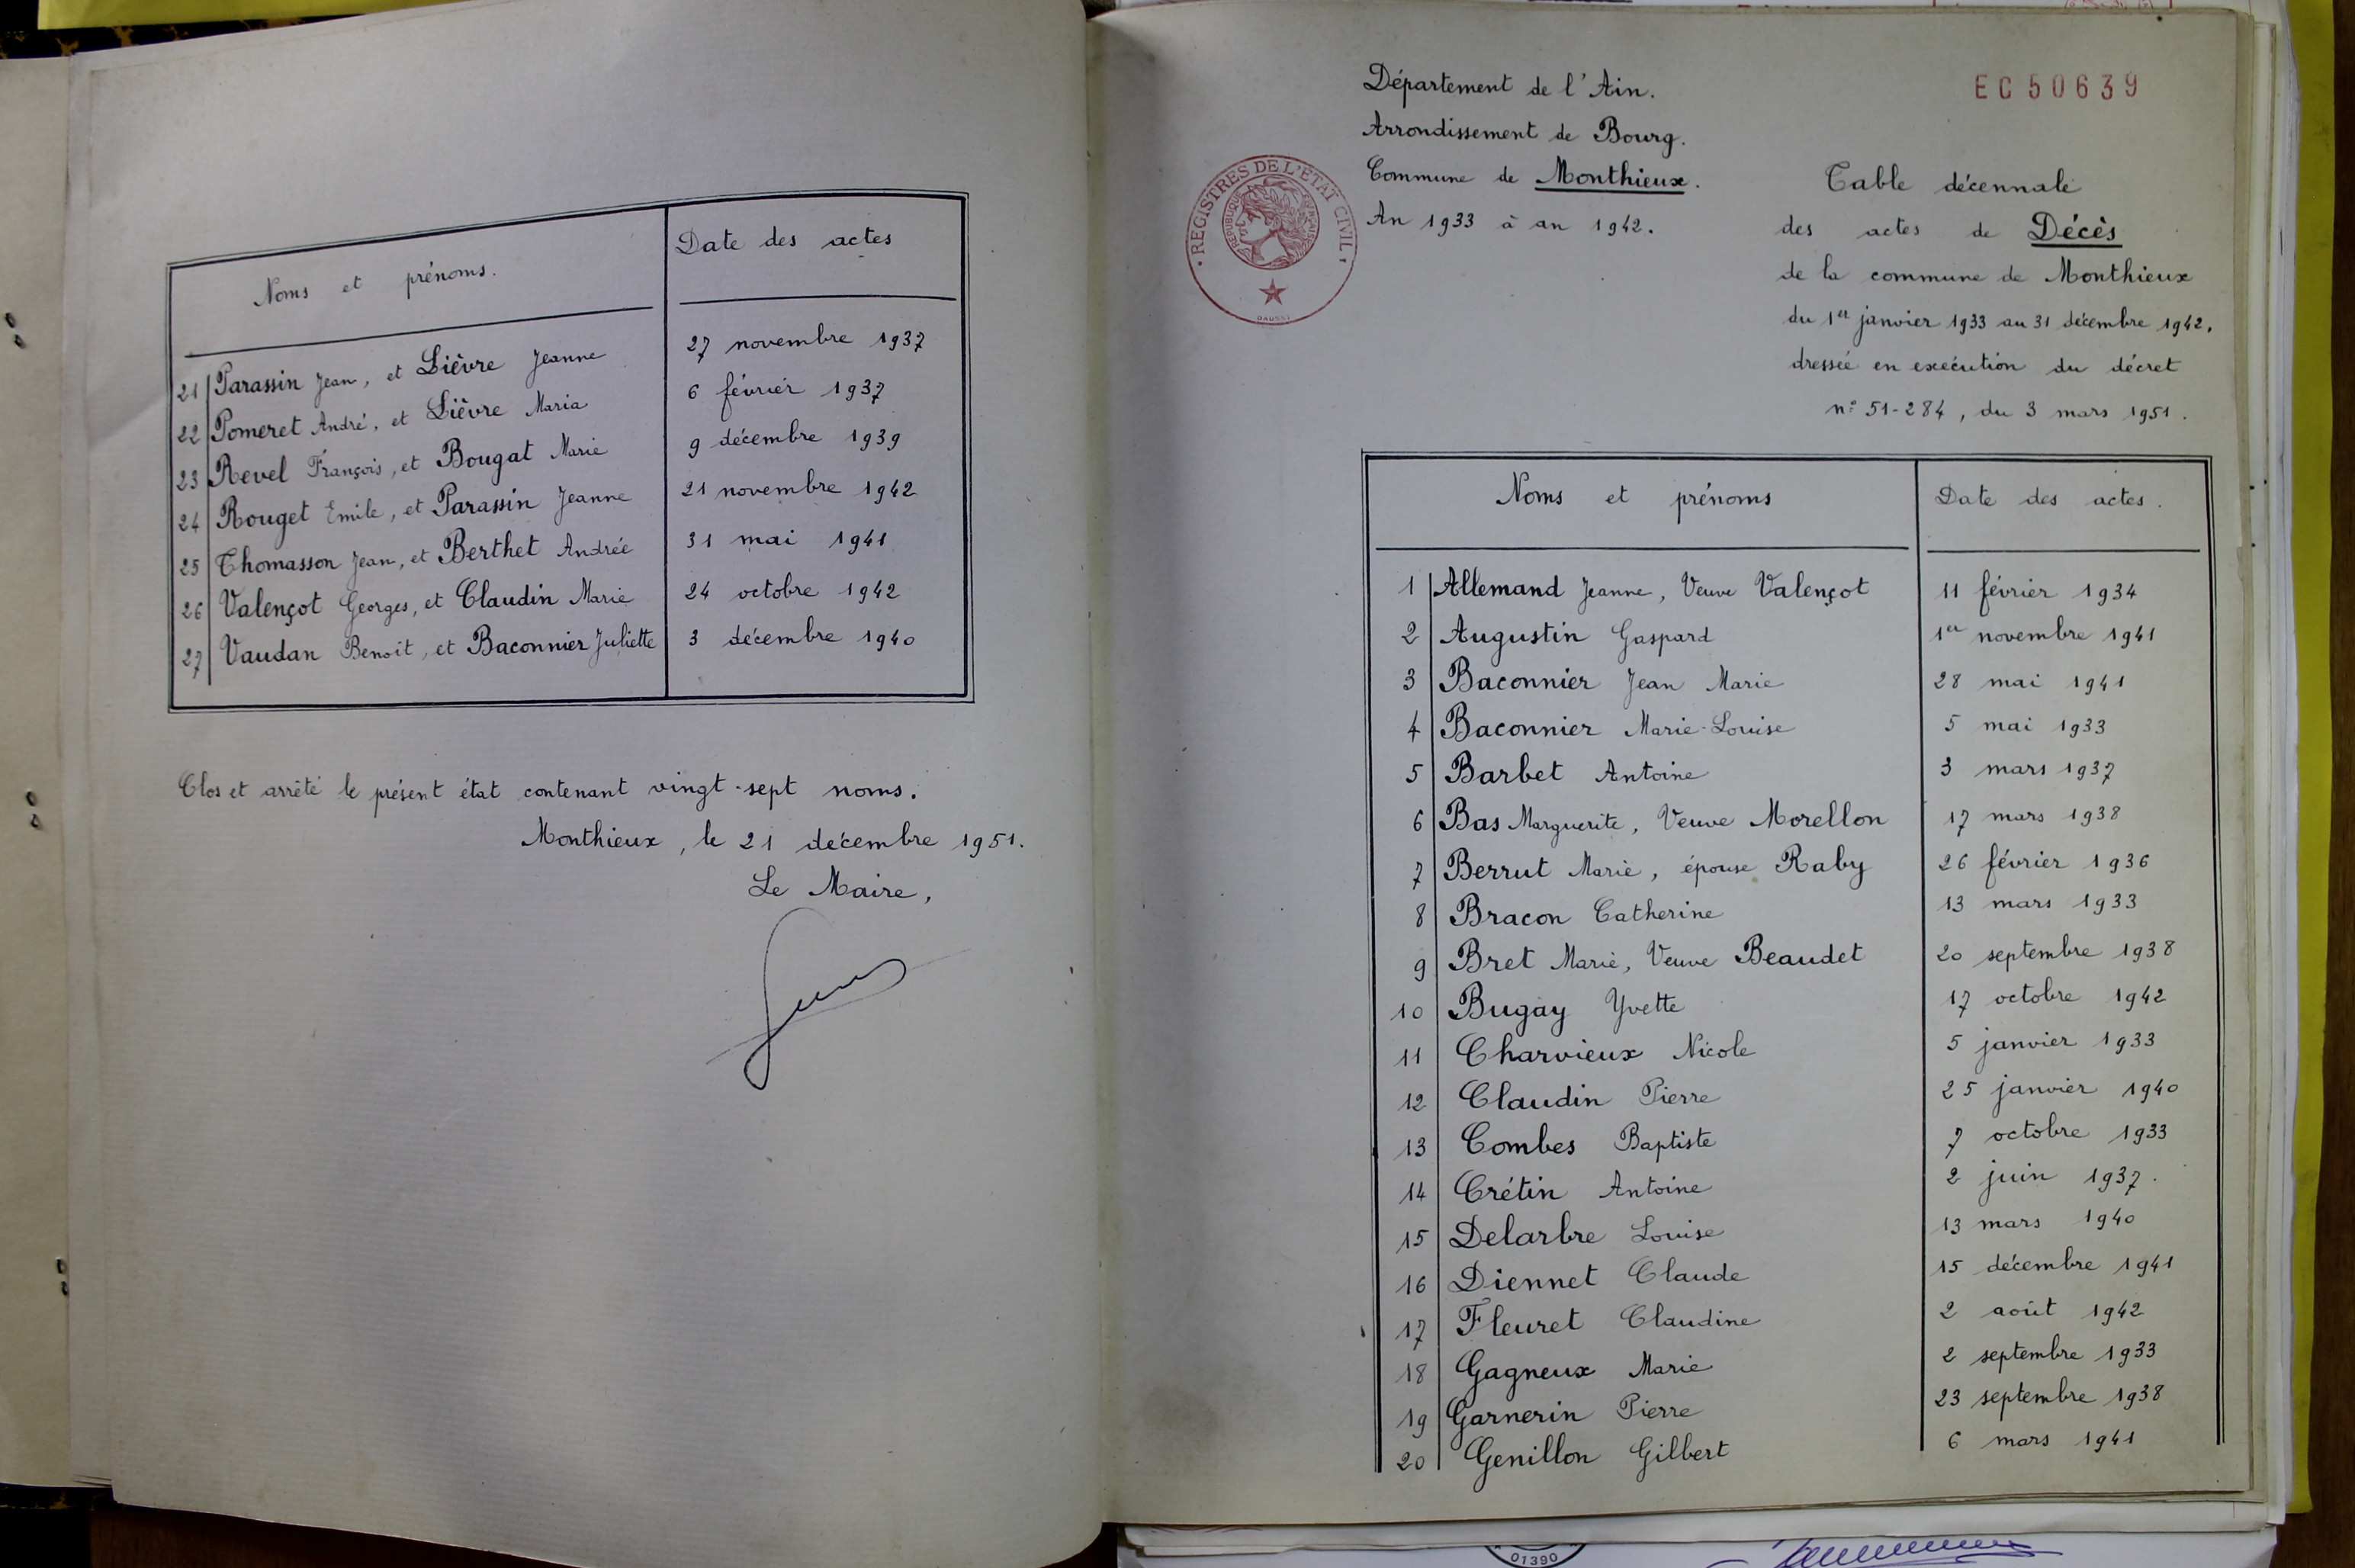 Noms et prénoms.
Date des actes
21 Parassin Jean, et Lièvre Jeanne 27 novembre 1937
22 Pomeret André, et Lièvre Maria 6 février 1937
23 Revel François, et Bougat Marie 9 décembre 1939
24 Rouget Emile, et Parassin Jeanne 21 novembre 1942
25 Thomasson Jean, et Berthet Andrée 31 mai 1941
26 Valençot Georges, et Claudin Marie 24 octobre 1942
27 Vaudan Benoit, et Baconnier Juliette 3 décembre 1940
Clos et arrêté le présent état contenant vingt-sept noms.
Monthieux, le 21 décembre 1951.
Le Maire,
Département de l'Ain.
EC50639
Arrondissement de Bourg.
Commune de Monthieux.
An 1933 à an 1942.
REGISTRES DE L'ÉTAT CIVIL
RÉPUBLIQUE FRANÇAISE
Table décennale
des actes de Décès
de la commune de Monthieux
du 1er janvier 1933 au 31 décembre 1942.
dressée en exécution du décret
n° 51-284, du 3 mars 1951.
Noms et prénoms Date des actes.
1 Allemand Jeanne, Veuve Valençot 11 février 1934
2 Augustin Gaspard 1er novembre 1941
3 Baconnier Jean Marie 28 mai 1941
4 Baconnier Marie-Louise 5 mai 1933
5 Barbet Antoine 3 mars 1937
6 Bas Marguerite, Veuve Morellon 17 mars 1938
7 Berrut Marie, épouse Raby 26 février 1936
8 Bracon Catherine 13 mars 1933
9 Bret Marie, Veuve Beaudet 20 septembre 1938
10 Bugay Yvette 17 octobre 1942
11 Charvieux Nicole 5 janvier 1933
12 Claudin Pierre 25 janvier 1940
13 Combes Baptiste 7 octobre 1933
14 Crétin Antoine 2 juin 1937.
15 Delarbre Louise 13 mars 1940
16 Diennet Claude 15 décembre 1941
17 Fleuret Claudine 2 août 1942
18 Gagneux Marie 2 septembre 1933
19 Garnerin Pierre 23 septembre 1938
20 Genillon Gilbert 6 mars 1941
01390